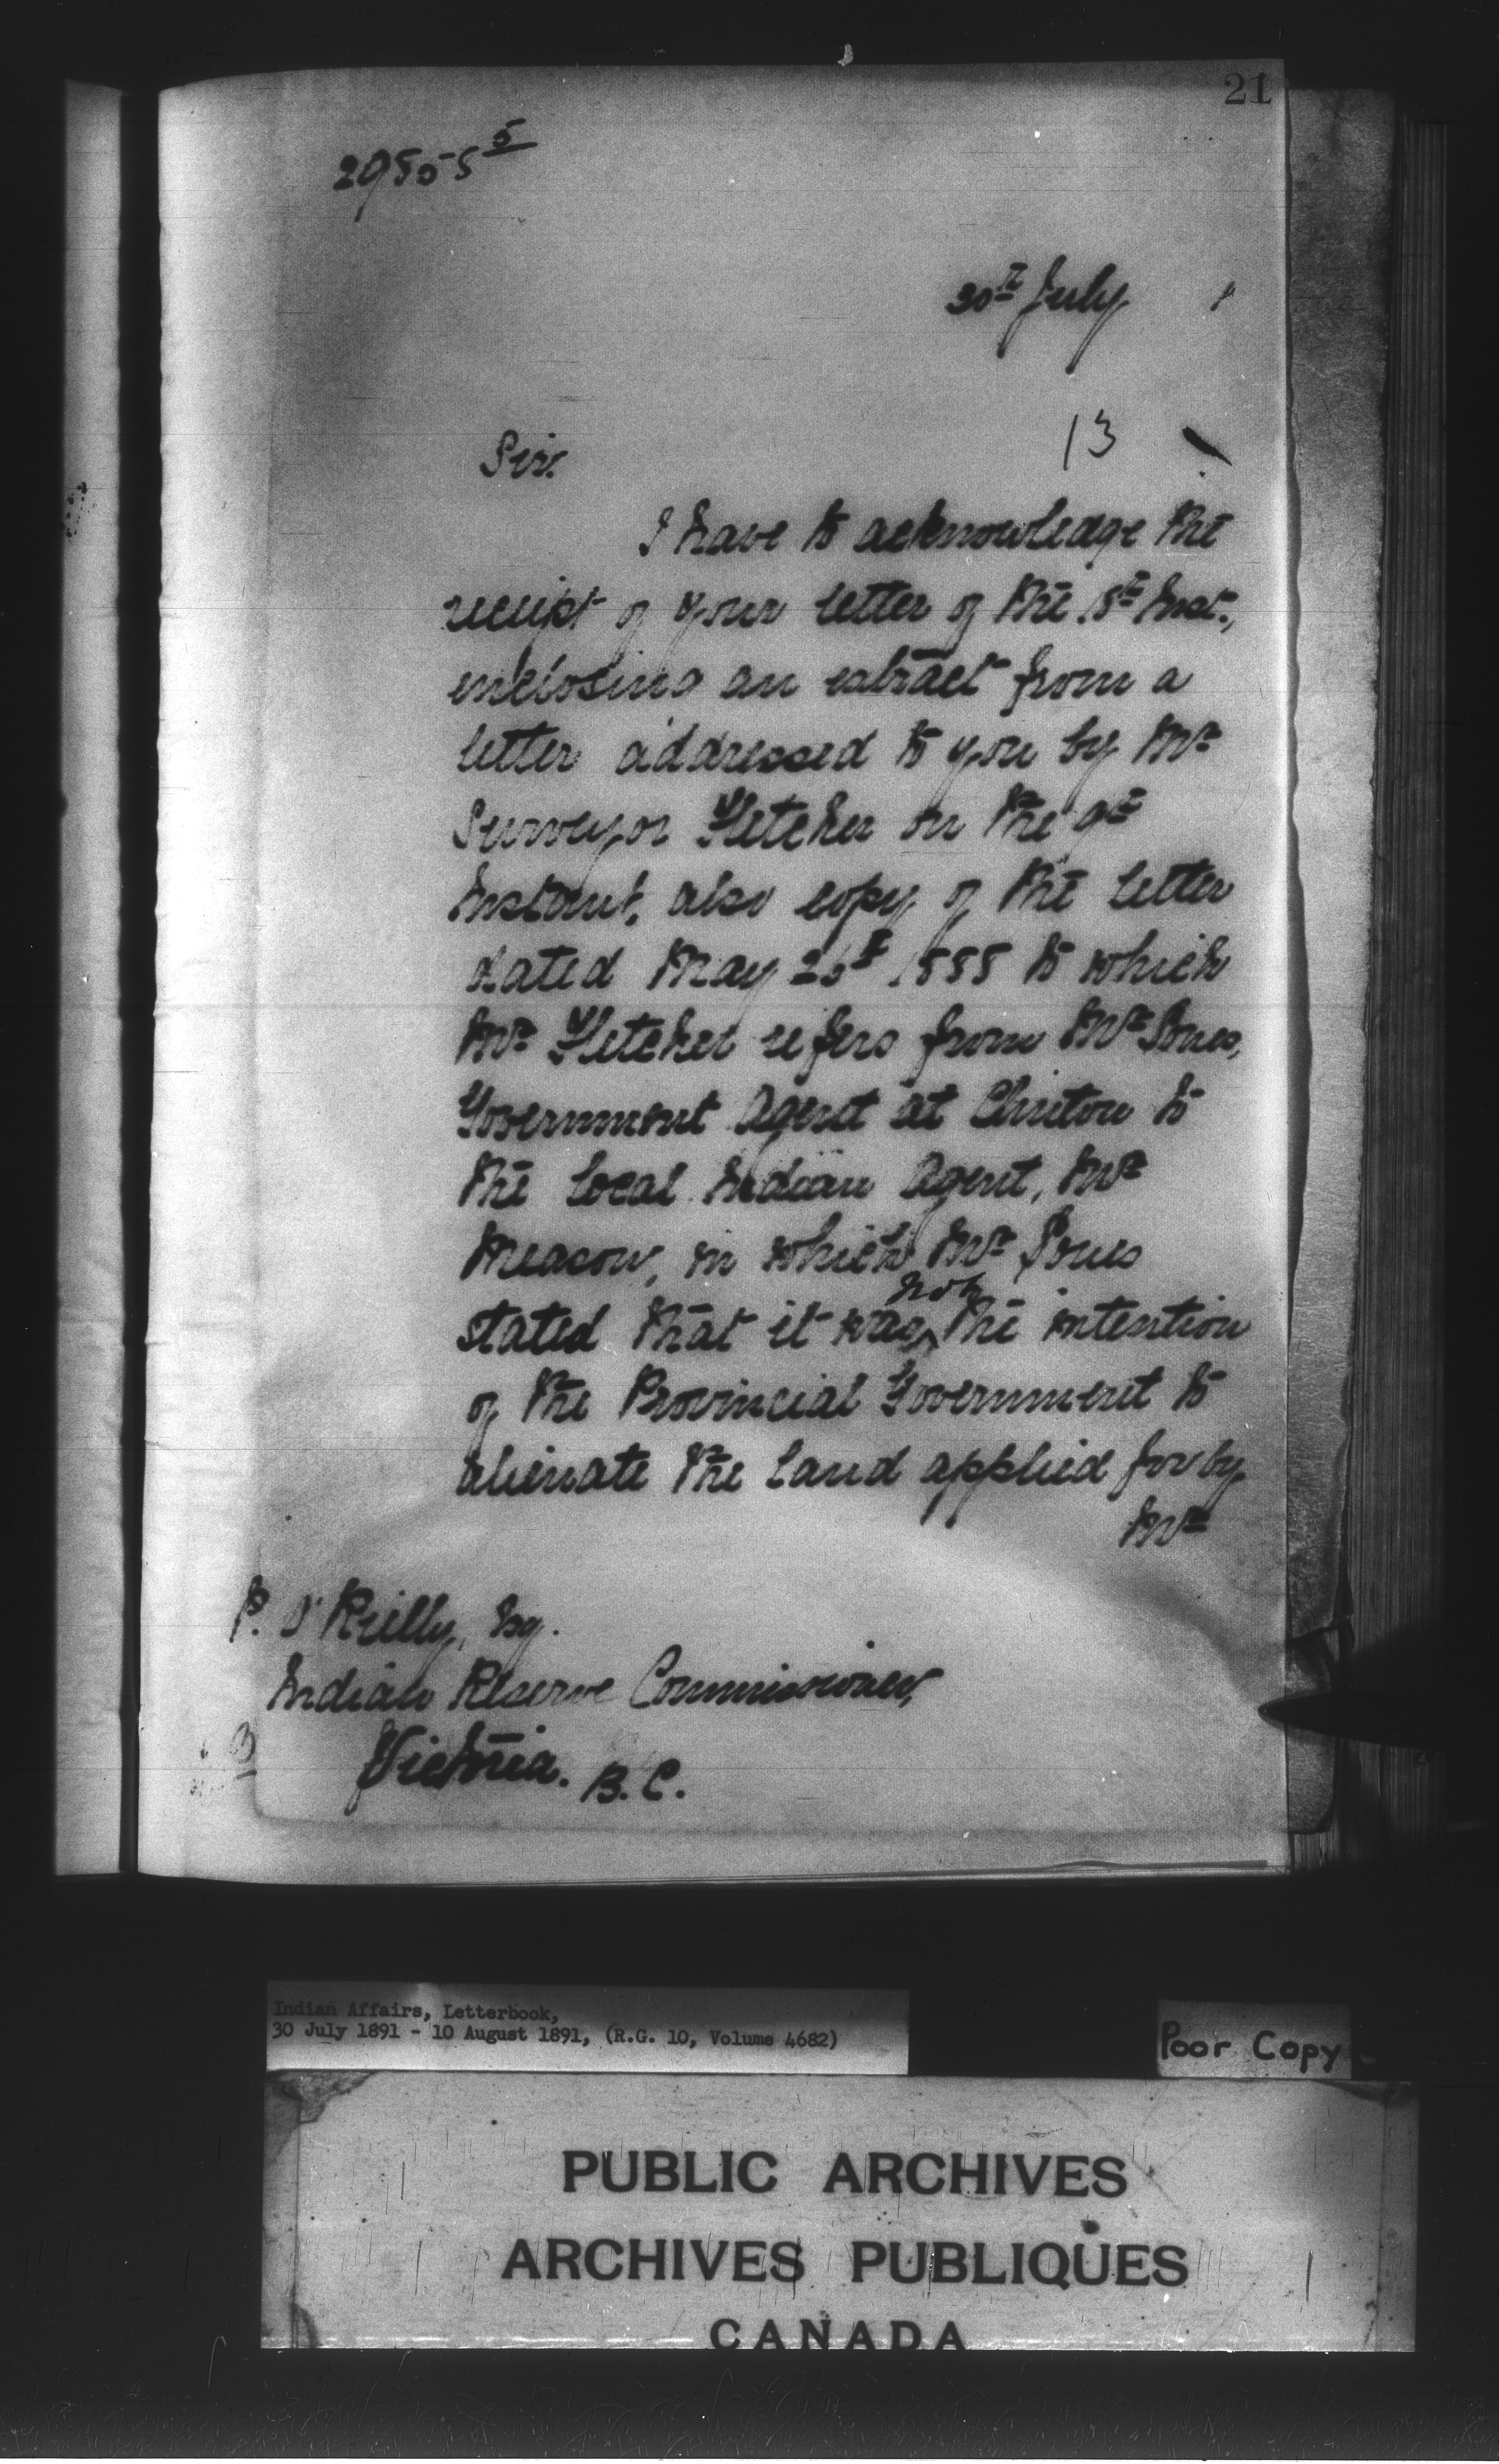 21
29555 5
30th July 1
13
Sir.
I have to acknowledge the
receipt of your letter of the 18th Inst.,
enclosing an extract from a
letter addressed to you by Mr
Surveyor Fletcher on the 9th
Instant, also copy of the letter
dated May 26th 1888 to which
Mr Fletcher refers from Mr Soues,
Government Agent at Clinton to
the local Indian Agent, Mr
Meason, in which Mr Soues
stated that it was not the intention
of the Provincial Government to
alienate the land applied for by
Mr
P. O'Reilly, Esq.
Indian Reserve Commissioner,
Victoria. B.C.
Indian Affairs, Letterbook,
30 July 1891 - 10 August 1891, (R.G. 10, Volume 4682)
Poor Copy
PUBLIC ARCHIVES
ARCHIVES PUBLIQUES
CANADA